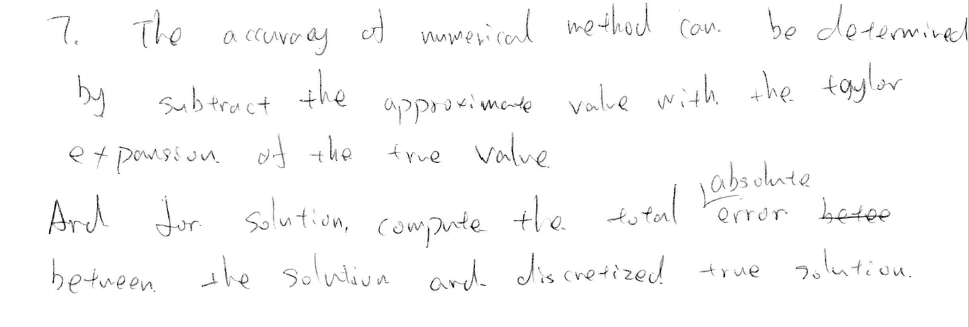 7. The accuracy of numerical method can be determined
by subtract the approximate value with the taylor
expansion of the true value
And for solution, compute the total absolute error betee
between the solution and discretized true solution.